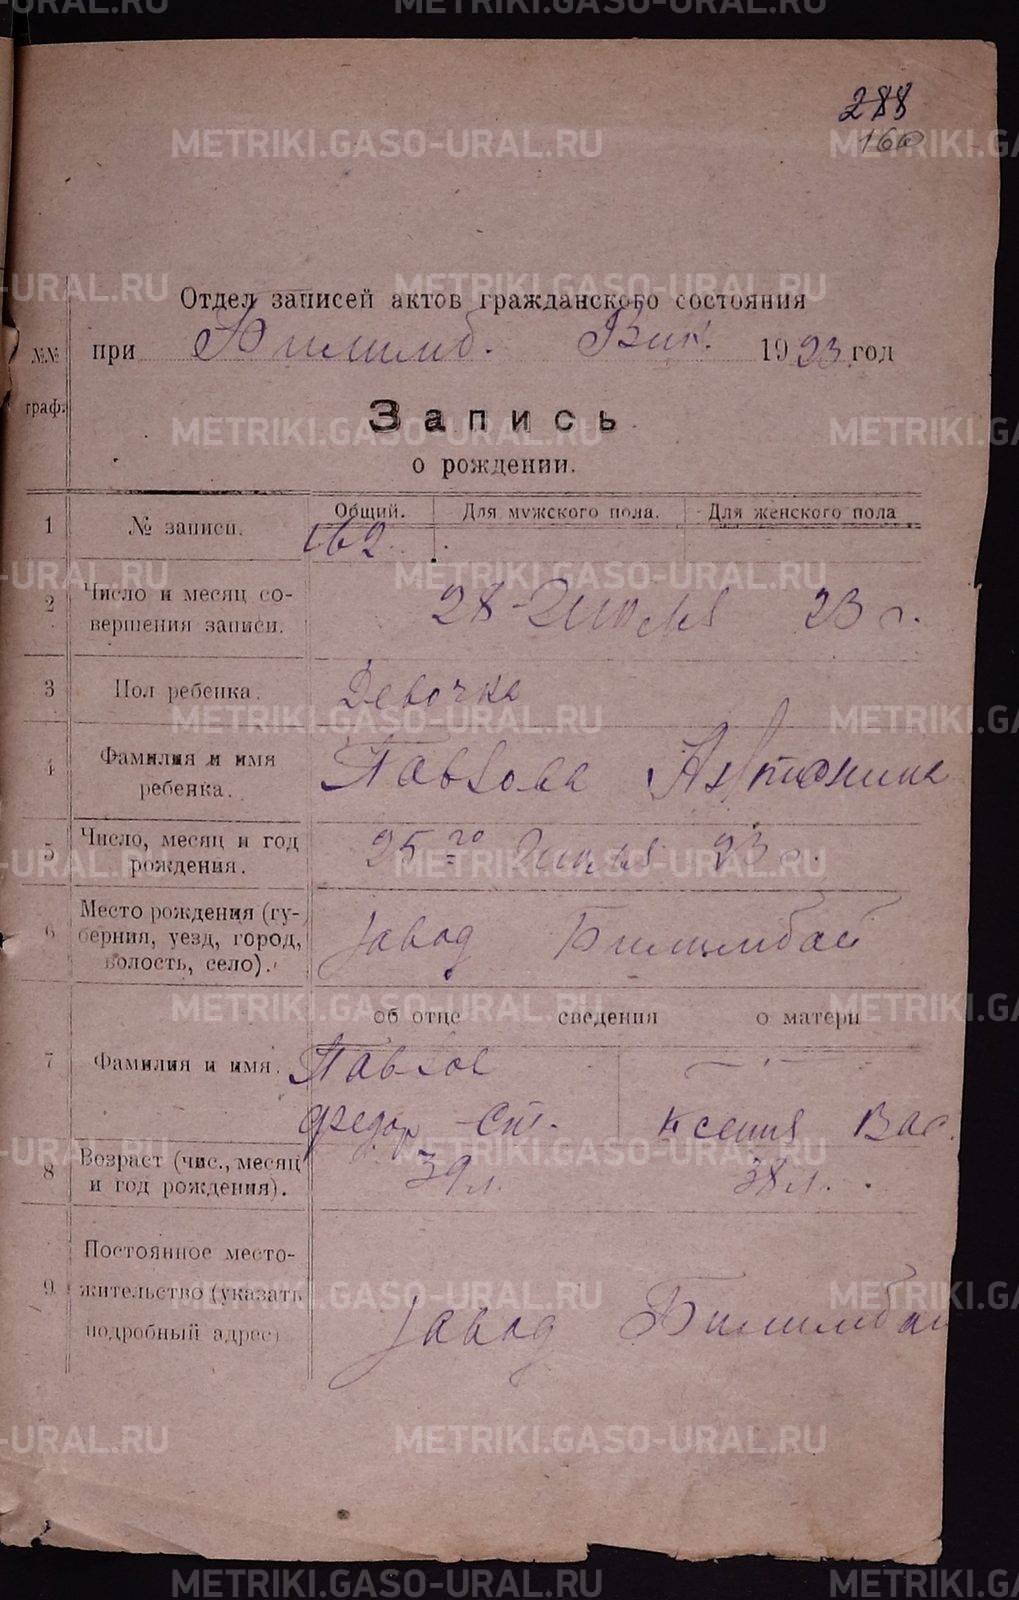 288
160
Отдел записей актов гражданского состояния
при Билимб. Вик. 1923 год
№№ граф.
Запись
о рождении.
Общий. Для мужского пола. Для женского пола
1 № записи. 162
2 Число и месяц со-
вершения записи. 28 - Июля 23 г.
3 Пол ребенка. Девочка
4 Фамилия и имя
ребенка. Павлова Антонина
5 Число, месяц и год
рождения. 25го Июля 23 г.
6 Место рождения (гу-
берния, уезд, город,
волость, село). завод Билимбай
об отце сведения о матери
7 Фамилия и имя. Павлов — " —
Федор Ст. Ксения Вас.
8 Возраст (чис., месяц
и год рождения). 39 л. 38 л.
Постоянное место-
9 жительство (указать
подробный адрес) завод Билимбай
METRIKI.GASO-URAL.RU